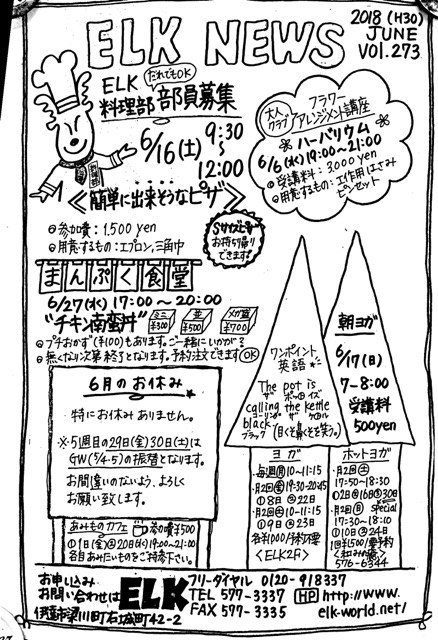 ELK NEWS
2018 (H30)
JUNE
VOL.273
ELK だれでもOK
料理部 部員募集
6/16(土) 9:30
〜
12:00
《簡単に出来そうなピザ》
◎参加費：1,500 yen
◎用意するもの：エプロン,三角巾
Sサイズピザ
お持ち帰り
できます!
大人
クラブ
フラワー
アレンジメント講座
ハーバリウム
6/6(水) 19:00〜21:00
◎受講料：3,000 yen
◎用意するもの：工作用はさみ
ピンセット
料理部
まんぷく食堂
6/27(水) 17:00 〜 20:00
"チキン南蛮丼"
ミニ
¥300
並
¥500
メガ盛
¥700
◎プチおかず(¥100)もあります。ご一緒にいかが?
◎無くなり次第終了となります。予約注文できます OK
6月のお休み
特にお休みありません。
※5週目の29日(金)30日(土)は
GW(5/4・5)の振替となります。
お間違いのないよう、よろしく
お願い致します。
あみものカフェ 参加費¥500
①1日(金)②20日(水) 19:00〜21:00
各自あみたいものをご持参下さい。
ワンポイント
英語
The pot is
ザ ポット イズ
calling the kettle
コーリング ザ ケトル
black
ブラック
(目くそ鼻くそを笑う。)
朝ヨガ
6/17(日)
7-8:00
受講料
500yen
ヨガ
・毎週(月)10〜11:15
・月2回(金)19:30-20:45
①8日 ②22日
・月2回(土)10〜11:15
①9日 ②23日
各¥1000/予約不要
<ELK2F>
ホットヨガ
・月2回(土)
17:50-18:30
①2日②16日③30日
・月2回(日) special
17:30〜18:10
①10日②24日
1回¥1500/要予約
<和み庵>
576-6344
お申し込み
お問い合わせは ELK
フリーダイヤル 0120-918337
TEL 577-3337 HP http://www.
伊達市梁川町右城町42-2 FAX 577-3335 elk-world.net/